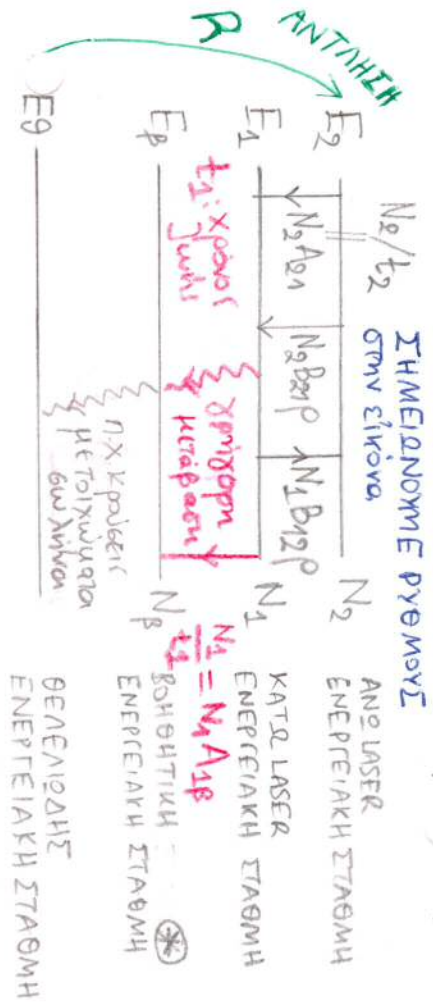 ΣΗΜΕΙΩΝΟΥΜΕ ΡΥΘΜΟΥΣ
στην εικόνα
ΑΝΤΛΗΣΗ
R
N₂/t₂
E₂
N₂
ΑΝΩ LASER
ΕΝΕΡΓΕΙΑΚΗ ΣΤΑΘΜΗ
N₂A₂₁
N₂B₂₁ρ
N₁B₁₂ρ
E₁
N₁
ΚΑΤΩ LASER
ΕΝΕΡΓΕΙΑΚΗ ΣΤΑΘΜΗ
t₁: χρόνος
ζωής
γρήγορη
μετάβαση
N₁/t₁ = N₁A₁β
Eβ
Nβ
ΒΟΗΘΗΤΙΚΗ
ΕΝΕΡΓΕΙΑΚΗ ΣΤΑΘΜΗ
*
π.χ. κρούσεις
με τοιχώματα
σωλήνα
Eθ
ΘΕΛΕΛΙΩΔΗΣ
ΕΝΕΡΓΕΙΑΚΗ ΣΤΑΘΜΗ